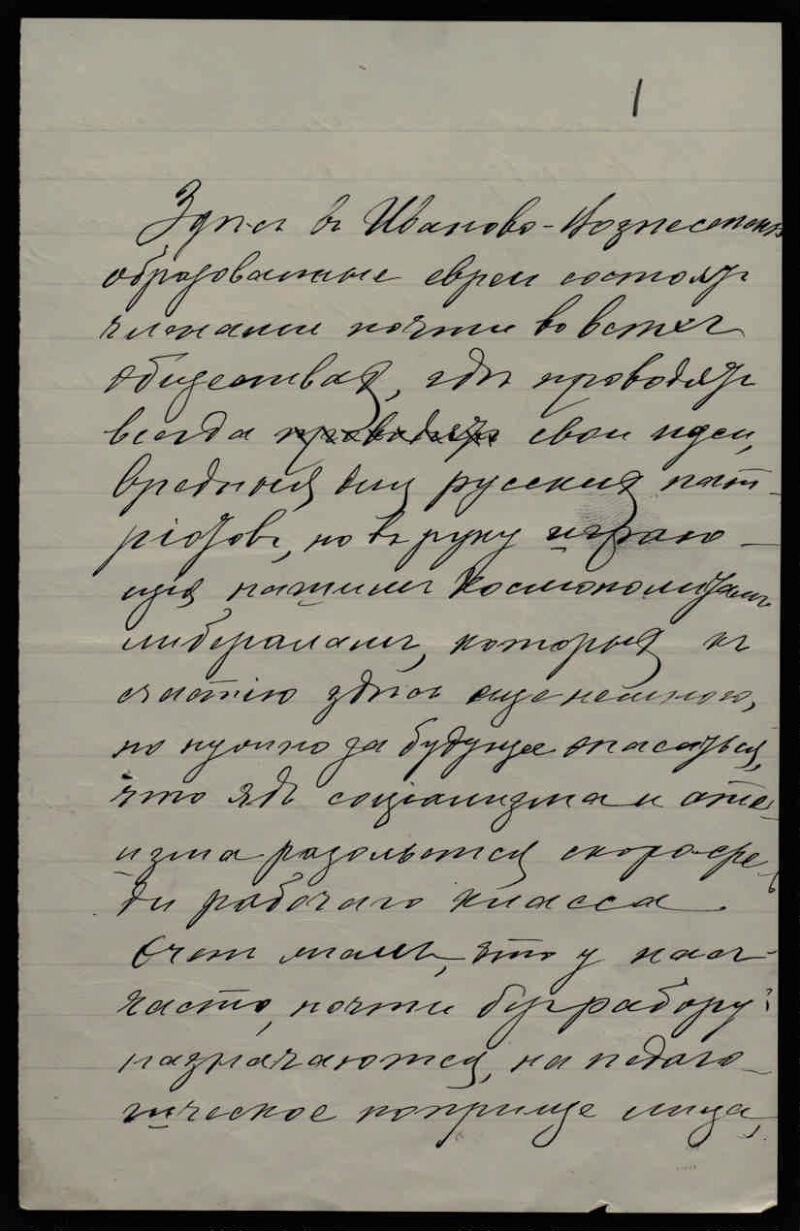 1
Здѣсь въ Иваново-Вознесенскѣ
образованные евреи состоятъ
членами почти во всѣхъ
обществахъ, гдѣ проводятъ
всегда проводятъ свои идеи,
вредныя для русскихъ пат-
ріотовъ, но въ руку играю-
щія нашимъ космополитамъ
либераламъ, которыхъ къ
счастію здѣсь еще немного,
но нужно за будущее опасаться,
что ядъ соціализма и ате-
изма разольется скоро сре-
ди рабочаго класса.
жаль, что у насъ
часто, почти безъ разбору
назначаются, на педаго-
гическое поприще лица,